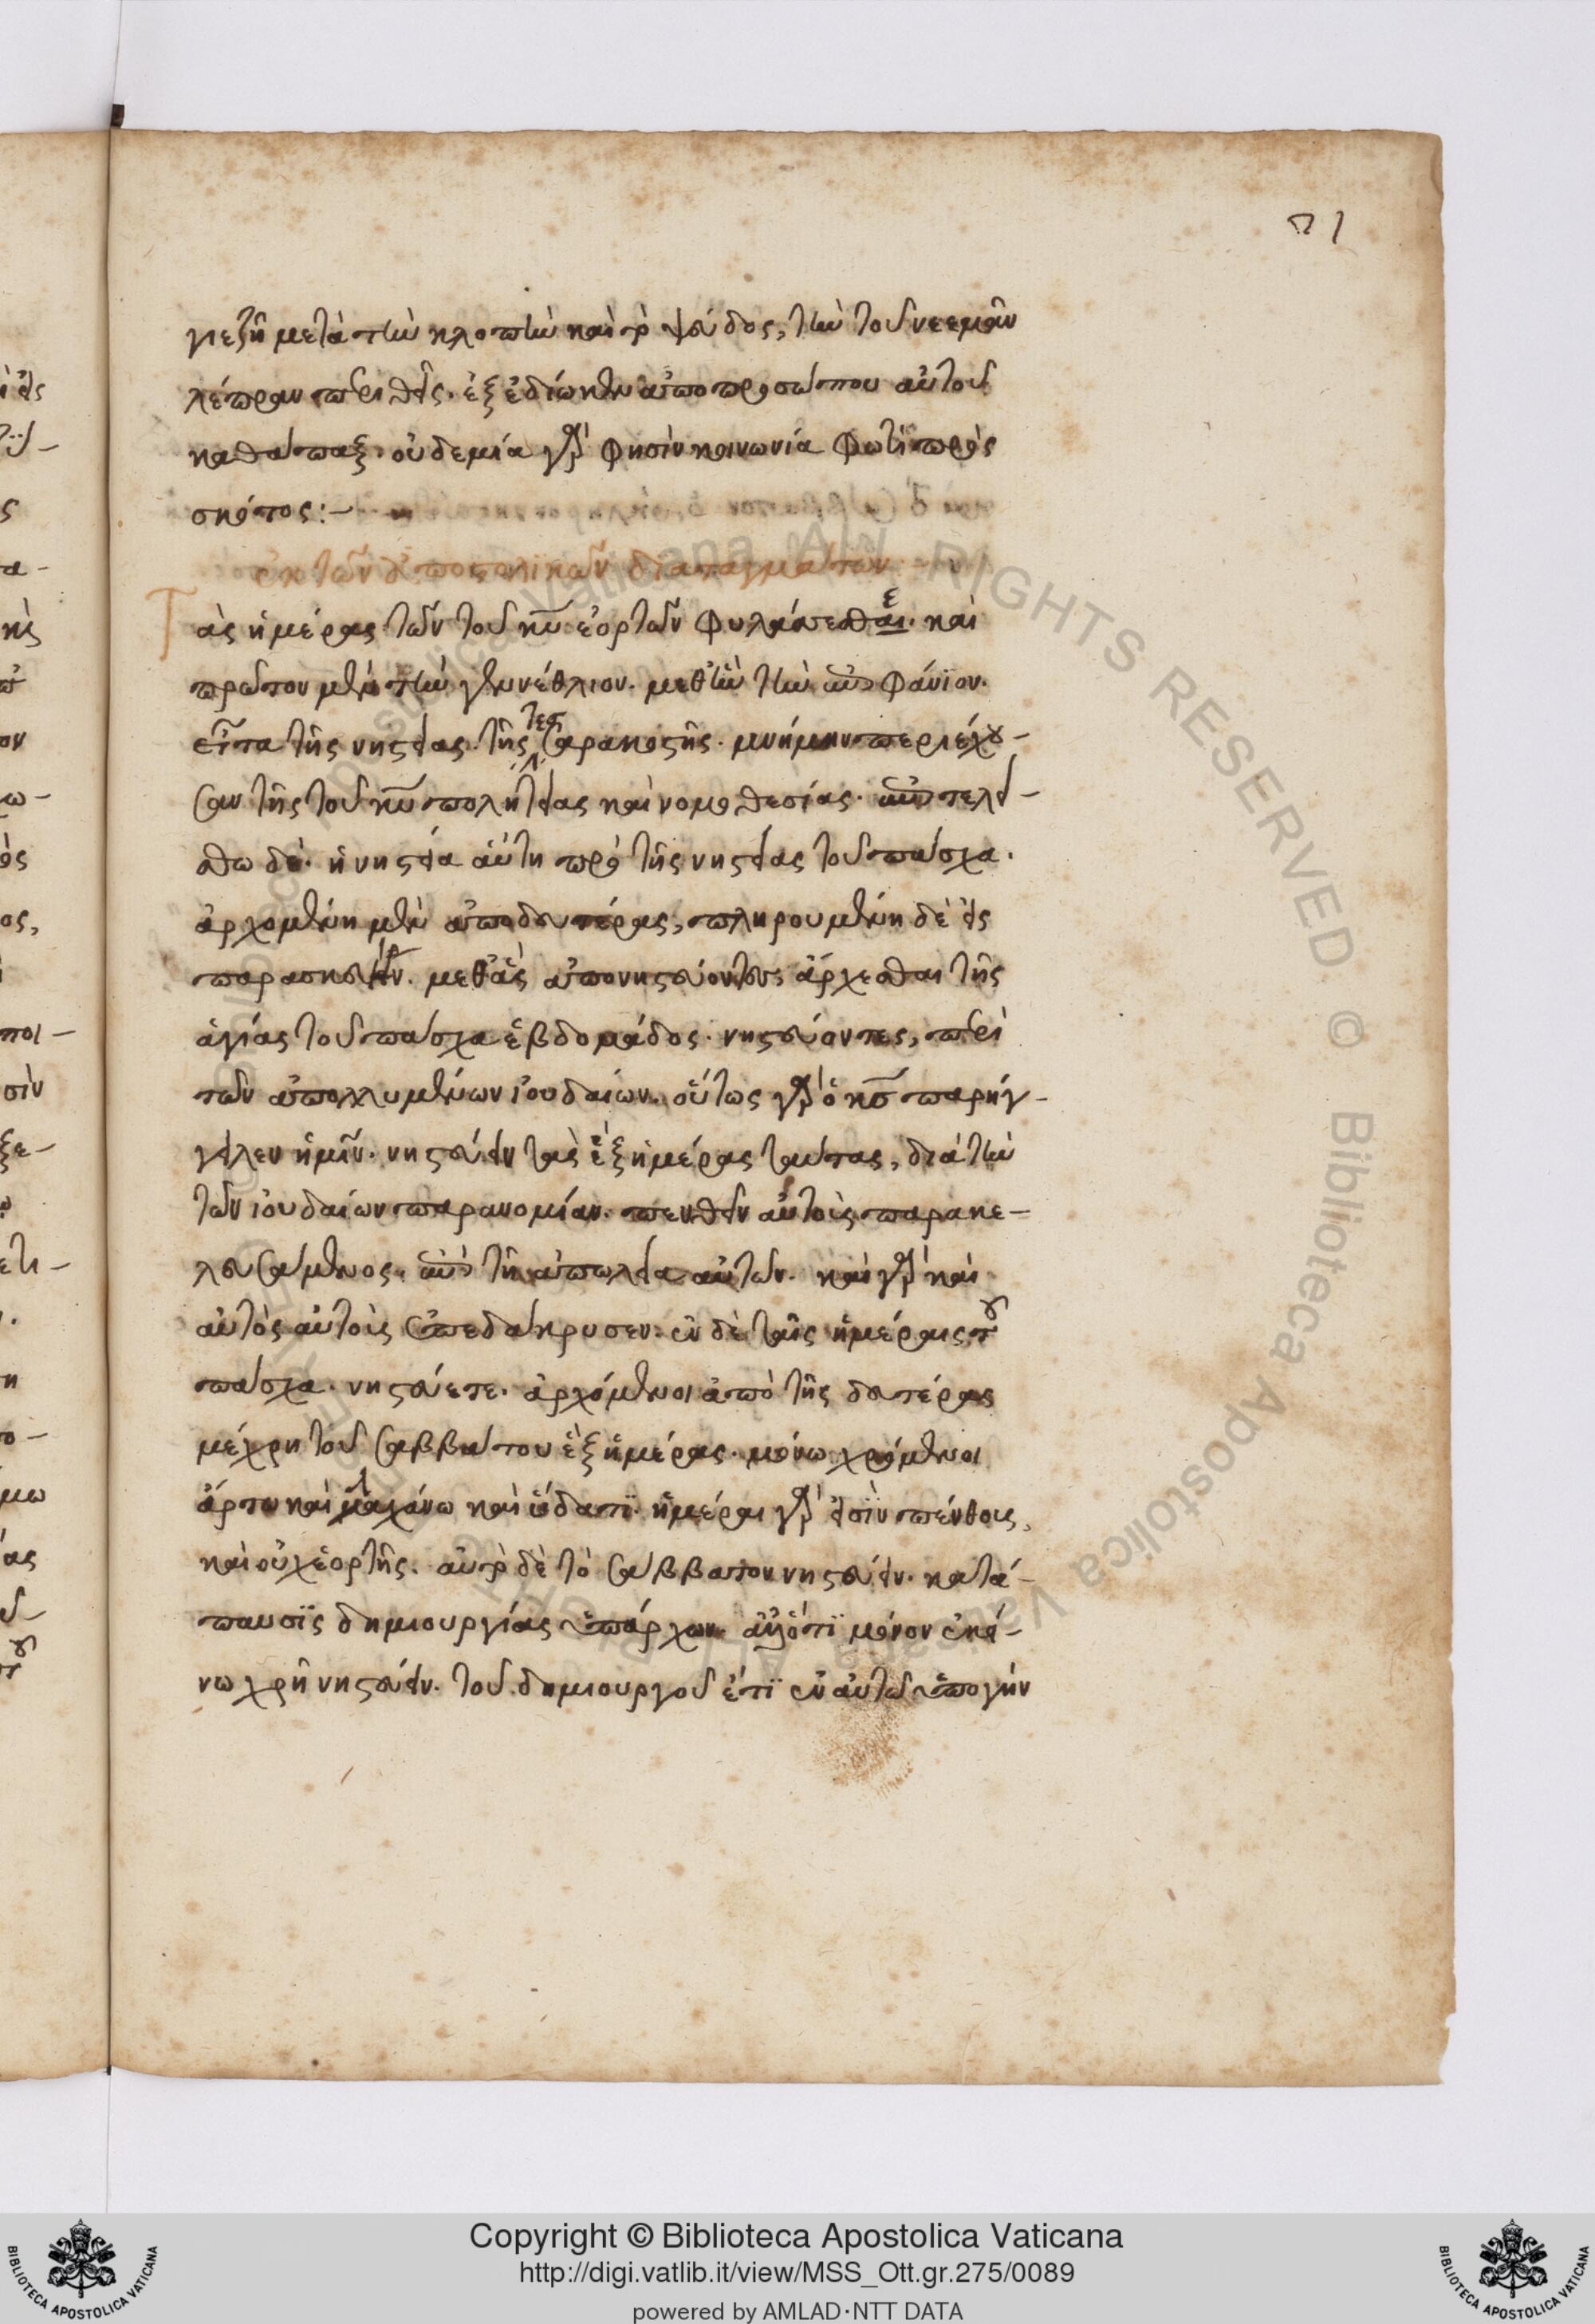 Π1
γιεζῆ μετὰ τὴν κλοπὴν καὶ τὸ ψεύδος, τὴν τοῦ νεεμὰν
λέπραν περιθεὶς. ἐξεδίωκεν ἀπο προσώπου αὐτοῦ
καθάπαξ. οὐδεμία γὰρ φησὶν κοινωνία φωτὶ πρὸς
σκότος:-
ἐκ τῶν ἀποστολικῶν διαταγμάτων
Τὰς ἡμέρας τῶν τοῦ κυ ἑορτῶν φυλάττεσθαι ε. καὶ
πρῶτον μὲν τὴν γενέθλιον. μεθ ἣν τὴν ἐπιφάνϊον.
εἶτα τῆς νηστείας. τῆς τεσσαρακοστῆς. μνήμην περιέχου-
σαν τῆς τοῦ κυ πολητείας καὶ νομοθεσίας. ἐπιτελεί-
σθω δὲ. ἡ νηστεία αὕτη πρὸ τῆς νηστείας τοῦ πάσχα.
ἀρχομένη μὲν ἀπο δευτέρας, πληρουμένη δὲ εἰς
παρασκευήν. μεθ ἃς ἀπονηστεύοντες ἄρχεσθαι τῆς
ἁγίας τοῦ πάσχα ἑβδομάδος. νηστεύοντες, περὶ
τῶν ἀπολλυμένων ἰουδαίων. οὕτως γὰρ ὁ κς παρήγ-
γειλεν ἡμῖν. νηστεύειν τὰς ἓξ ἡμέρας ταύτας, διὰ τὴν
τῶν ἰουδαίων παρανομίαν. πενθεῖν αὐτοὺς παρακε-
λευσάμενος. ἐπὶ τῆ ἀπωλεία αὐτῶν. καὶ γὰρ καὶ
αὐτὸς αὐτοὺς ἐπεδάκρυσεν. ἐν δὲ ταῖς ἡμέραις του
πάσχα. νηστεύετε. ἀρχόμενοι ἀπὸ τῆς δευτέρας
μέχρη τοῦ σαββάτου ἓξ ἡμέρας. μόνω χρόμενοι
ἄρτω καὶ λαχάνω καὶ ὕδατϊ. ἡμέραι γὰρ εἰσϊν πένθους,
καὶ οὐχ ἑορτῆς. αὐτὸ δὲ τὸ σάββατον νηστεύειν. κατά-
παυσϊς δημιουργίας ὑπάρχων. ἀλλ ὅτϊ μόνον ἐκεί-
νω χρὴ νηστεύειν. τοῦ δημιουργοῦ ἔτϊ ἐν αὐτῶ ὑπο γὴν
Copyright © Biblioteca Apostolica Vaticana
http://digi.vatlib.it/view/MSS_Ott.gr.275/0089
powered by AMLAD·NTT DATA